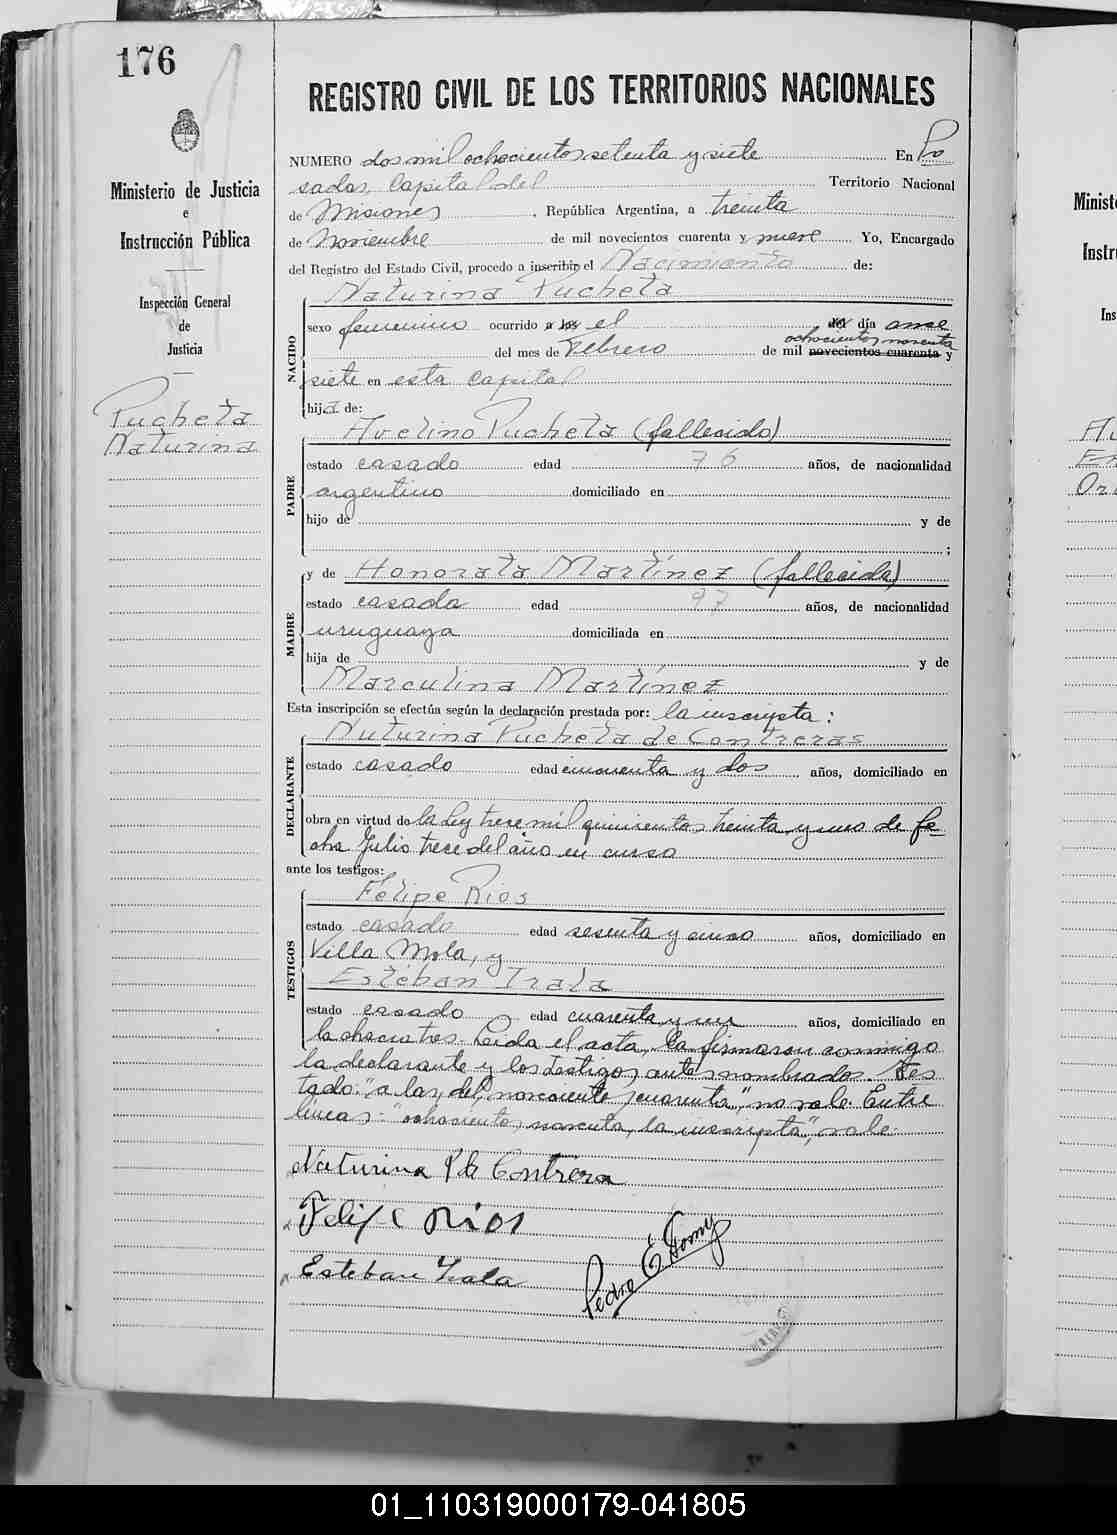 176
REGISTRO CIVIL DE LOS TERRITORIOS NACIONALES
NUMERO dos mil ochocientos setenta y siete En Po
sadas, Capital del Territorio Nacional
Ministerio de Justicia
e
Instrucción Pública
Inspección General
de
Justicia
Pucheta
Naturina
de Misiones, República Argentina, a treinta
de Noviembre de mil novecientos cuarenta y nueve Yo, Encargado
del Registro del Estado Civil, procedo a inscribir el Nacimiento de:
NACIDO
Naturina Pucheta
sexo femenino ocurrido a las el del día once
ochocientos noventa
del mes de Febrero de mil novecientos cuarenta y
siete en esta Capital
hija de:
PADRE
Avelino Pucheta (fallecido)
estado casado edad 76 años, de nacionalidad
argentino domiciliado en
hijo de y de
;
MADRE
y de Honorata Martínez (fallecida)
estado casada edad 97 años, de nacionalidad
uruguaya domiciliada en
hija de y de
Marculina Martínez
Esta inscripción se efectúa según la declaración prestada por: la inscripta:
DECLARANTE
Naturina Pucheta de Contreras
estado casado edad cincuenta y dos años, domiciliado en
obra en virtud de la Ley trece mil quinientos treinta y uno de fe-
cha Julio trece del año en curso
ante los testigos:
TESTIGOS
Felipe Rios
estado casado edad sesenta y cinco años, domiciliado en
Villa Mola, y
Esteban Irala
estado casado edad cuarenta y un años, domiciliado en
la chacra tres. Leída el acta, la firmaron conmigo
la declarante y los testigos antes nombrados. Tes
tado: "a las, del, novecientos cuarenta," no vale. Entre
líneas: "ochocientos noventa, la inscripta", vale.
Naturina P de Contrera
Felipe Rios
Esteban Irala
Pedro E.
Minist
Instr
Ins
01_110319000179-041805